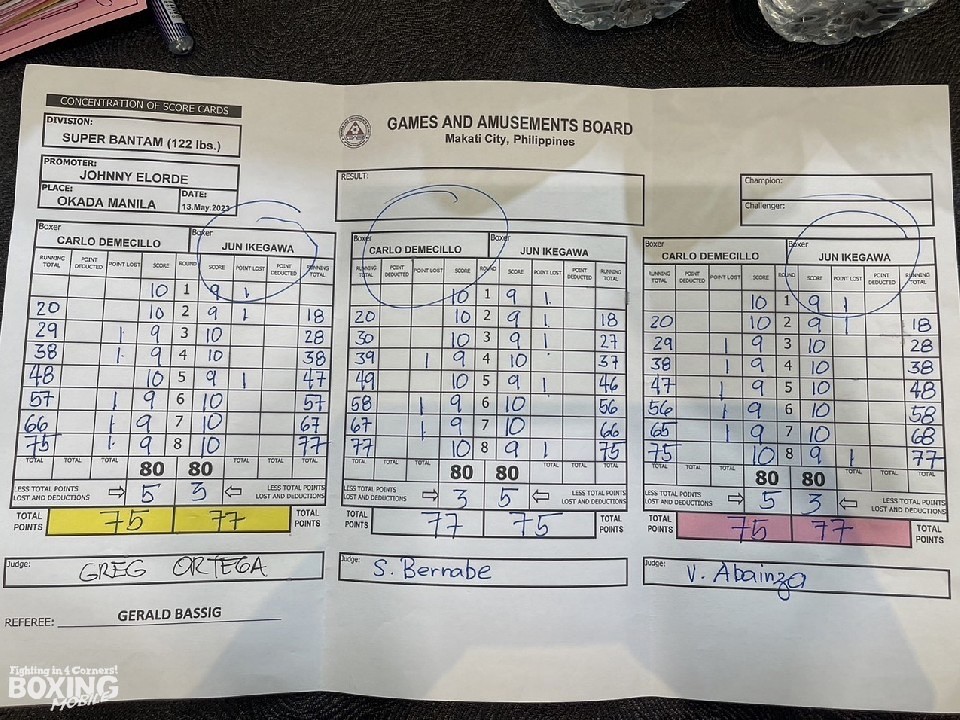 CONCENTRATION OF SCORE CARDS
DIVISION:
SUPER BANTAM (122 lbs.)
PROMOTER:
JOHNNY ELORDE
PLACE:
OKADA MANILA
DATE:
13.May.2023
GAMES AND AMUSEMENTS BOARD
Makati City, Philippines
RESULT:
Champion:
Challenger:
Boxer CARLO DEMECILLO Boxer JUN IKEGAWA
RUNNING TOTAL POINT DEDUCTED POINT LOST SCORE ROUND SCORE POINT LOST POINT DEDUCTED RUNNING TOTAL
10 1 9 1
20 10 2 9 1 18
29 1 9 3 10 28
38 1 9 4 10 38
48 10 5 9 1 47
57 1 9 6 10 57
66 1 9 7 10 67
75 1 9 8 10 77
TOTAL TOTAL TOTAL 80 80 TOTAL TOTAL TOTAL
LESS TOTAL POINTS LOST AND DEDUCTIONS ⇨ 5 3 ⇦ LESS TOTAL POINTS LOST AND DEDUCTIONS
TOTAL POINTS 75 77 TOTAL POINTS
Judge: GREG ORTEGA
Boxer CARLO DEMECILLO Boxer JUN IKEGAWA
RUNNING TOTAL POINT DEDUCTED POINT LOST SCORE ROUND SCORE POINT LOST POINT DEDUCTED RUNNING TOTAL
10 1 9 1
20 10 2 9 1 18
30 10 3 9 1 27
39 1 9 4 10 37
49 10 5 9 1 46
58 1 9 6 10 56
67 1 9 7 10 66
77 10 8 9 1 75
TOTAL TOTAL TOTAL 80 80 TOTAL TOTAL TOTAL
LESS TOTAL POINTS LOST AND DEDUCTIONS ⇨ 3 5 ⇦ LESS TOTAL POINTS LOST AND DEDUCTIONS
TOTAL POINTS 77 75 TOTAL POINTS
Judge: S. Bernabe
Boxer CARLO DEMECILLO Boxer JUN IKEGAWA
RUNNING TOTAL POINT DEDUCTED POINT LOST SCORE ROUND SCORE POINT LOST POINT DEDUCTED RUNNING TOTAL
10 1 9 1
20 10 2 9 1 18
29 1 9 3 10 28
38 1 9 4 10 38
47 1 9 5 10 48
56 1 9 6 10 58
65 1 9 7 10 68
75 10 8 9 1 77
TOTAL TOTAL TOTAL 80 80 TOTAL TOTAL TOTAL
LESS TOTAL POINTS LOST AND DEDUCTIONS ⇨ 5 3 ⇦ LESS TOTAL POINTS LOST AND DEDUCTIONS
TOTAL POINTS 75 77 TOTAL POINTS
Judge: V. Abainza
REFEREE: GERALD BASSIG
Fighting in 4 Corners!
BOXING
MOBILE